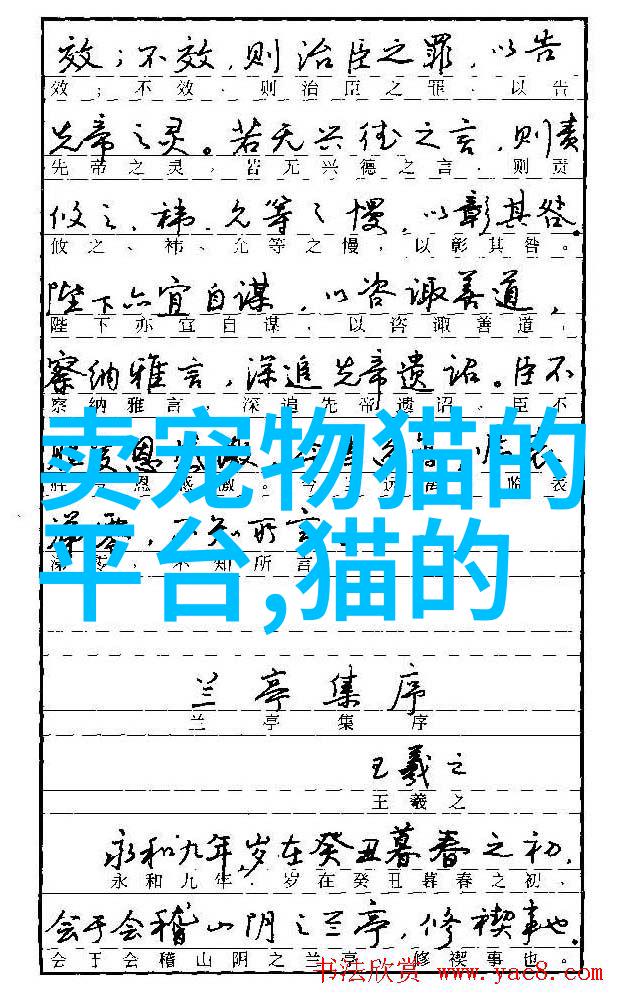 效；不效，则治臣之罪，以告
效；不效、则治臣之罪、以告
先帝之灵。若无兴德之言，则责
先帝之灵，若无兴德之言、则责
攸之、祎、允等之慢，以彰其咎。
攸之、祎、允等之慢，以彰其咎。
陛下亦宜自谋，以咨诹善道，
陛下亦宜自谋，以咨诹善道，
察纳雅言，深追先帝遗诏。臣不
察纳雅言，深追先帝遗诏。臣不
卖宠物猫的
恩 表
恩感激。今 远 临表
平台,猫的
零，不知所言
不知所言
兰亭集序
兰亭集序
王羲之
王羲之
永和九年，岁在癸丑暮春之初，
永和九年，岁在癸丑暮春之初、
会于会稽山阴之兰亭，修禊事也。
会于会稽山阴之兰亭，修禊事也。
书法欣赏 www.yac8.com